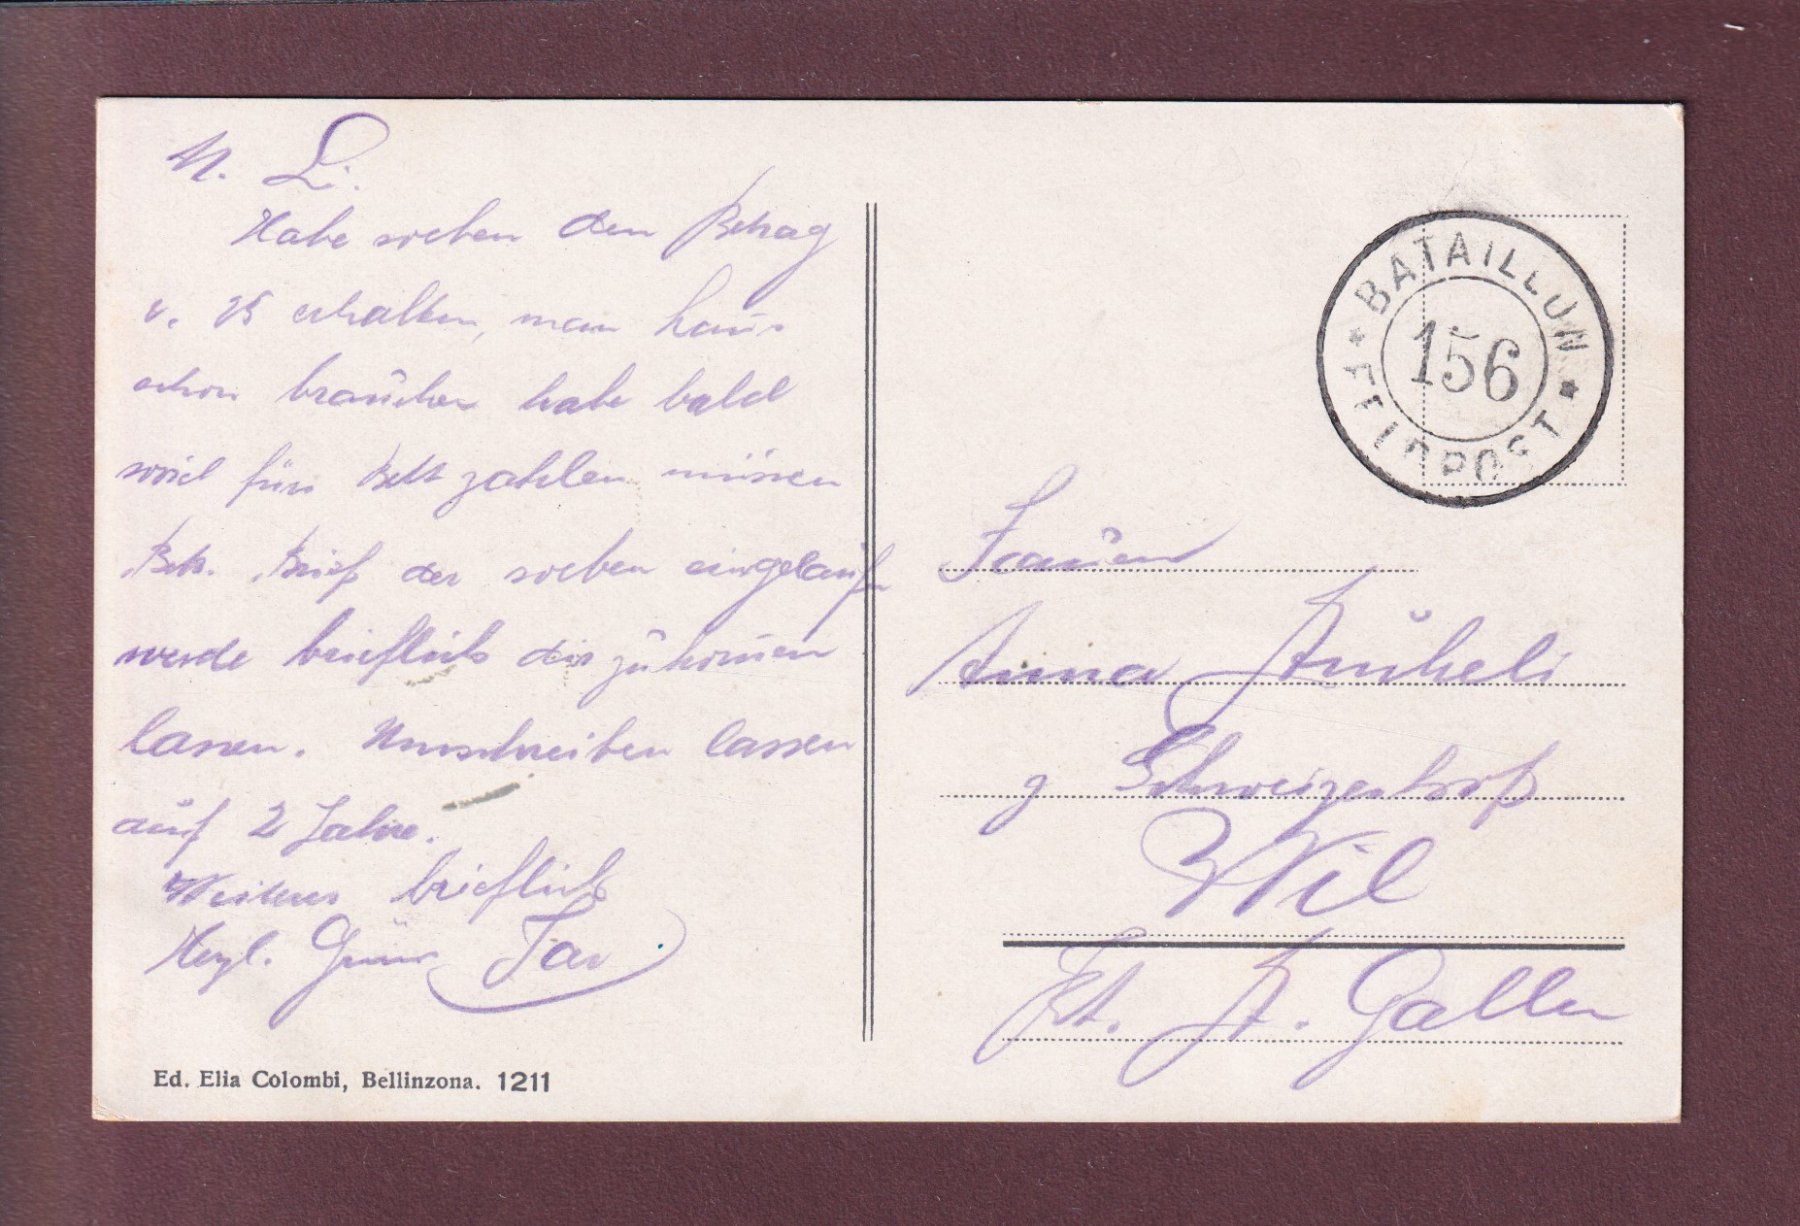 M. L.
Habe soeben den Betrag
v. 25 erhalten, man kans
schon brauchen habe bald
soviel fürs Bett zahlen müssen
Betr. Brief der soeben eingelauf
werde brieflich dir zukommen
lassen. Umschreiben lassen
auf 2 Jahre.
Weiteres brieflich
Herzl. Gruss
BATAILLON
156
FELDPOST
Anna
z Schweizerhof
Wil
Kt. St. Gallen
Ed. Elia Colombi, Bellinzona. 1211